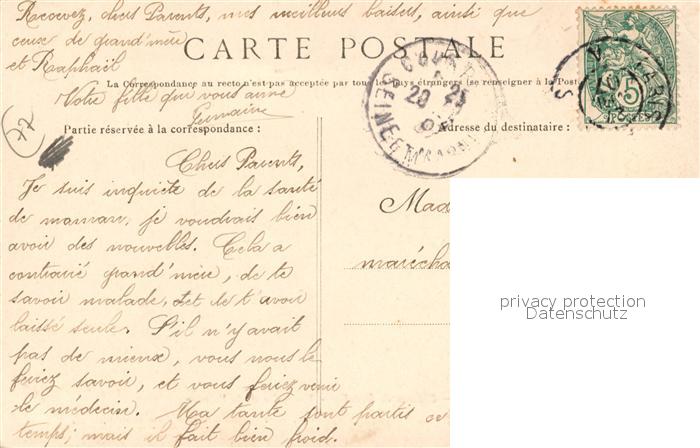 Recevez, chers Parents, mes meilleurs baisers, ainsi que
ceux de grand'mère
et Raphaël
CARTE POSTALE
La Correspondance au recto n'est pas acceptée par tous les pays étrangers (se renseigner à la Poste
Votre fille qui vous aime
Germaine
77
Partie réservée à la correspondance :
Adresse du destinataire :
SEINE-ET-MARNE
5
Chers Parents,
Je suis inquiète de la santé
de maman, je voudrais bien
avoir des nouvelles. Cela a
contrarié grand'mère, de te
savoir malade, et de t'avoir
laissé seule. S'il n'y avait
pas de mieux, vous nous le
feriez savoir, et vous feriez venir
le médecin. Ma tante sont partis ce
temps; mais il fait bien froid.
Mad
marécha
privacy protection
Datenschutz